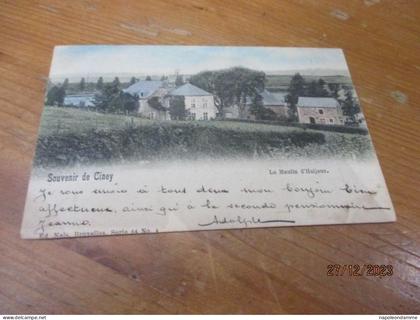 Souvenir de Ciney
Le Moulin d'Haljoux.
Je vous envoie à tous deux mon bonjour bien
affectueux, ainsi qu'à la seconde pensionnaire
Jeanne.
Adolphe
Ed. Nels, Bruxelles, Serie 44 No. 4
27/12/2023
www.napoleondamme.com